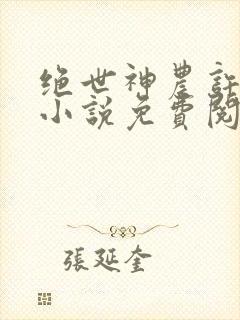 绝世神農許
小説免費閱
張延奎